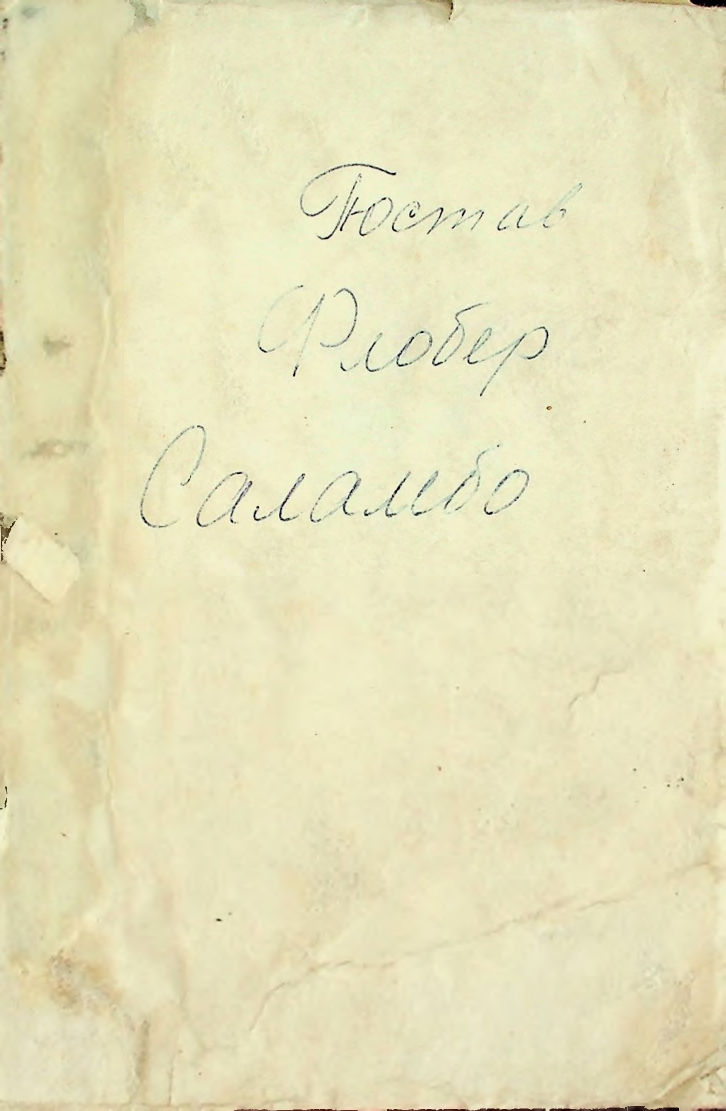 Гюстав
Флобер
Саламбо